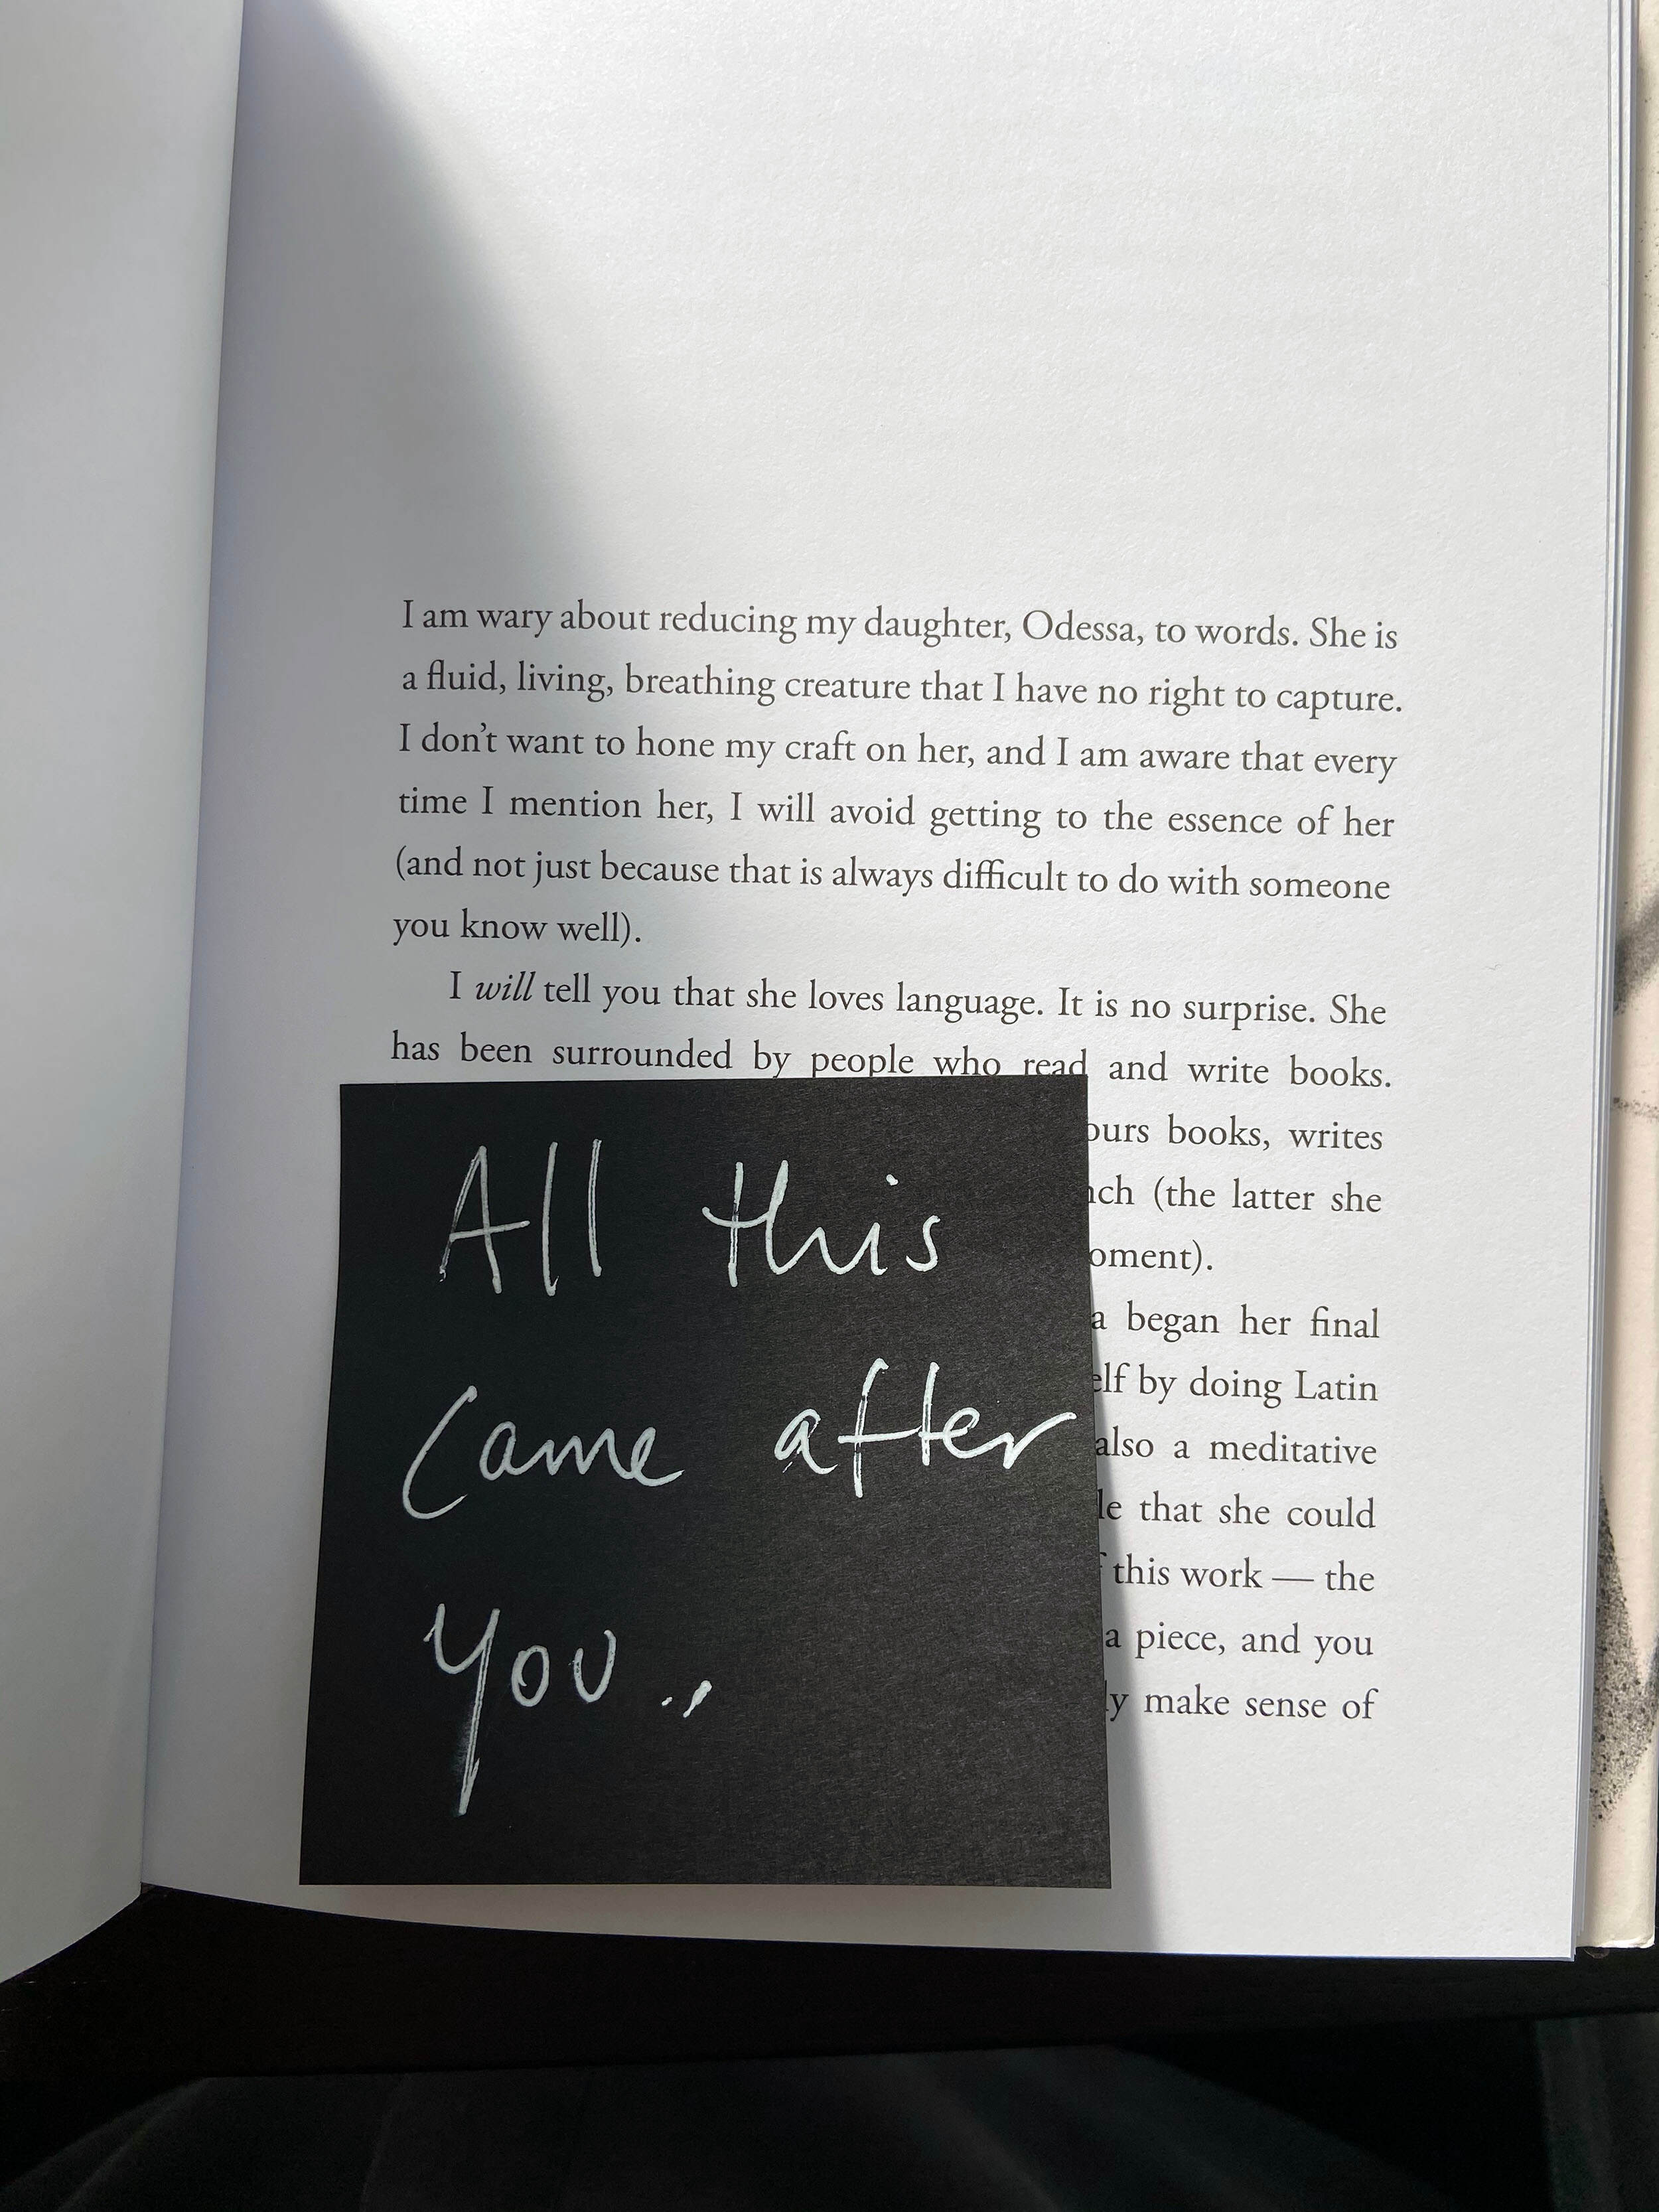 I am wary about reducing my daughter, Odessa, to words. She is
a fluid, living, breathing creature that I have no right to capture.
I don't want to hone my craft on her, and I am aware that every
time I mention her, I will avoid getting to the essence of her
(and not just because that is always difficult to do with someone
you know well).
I will tell you that she loves language. It is no surprise. She
has been surrounded by people who read and write books.
books, writes
(the latter she
began her final
by doing Latin
also a meditative
that she could
this work — the
a piece, and you
make sense of
All this
Came after
You..